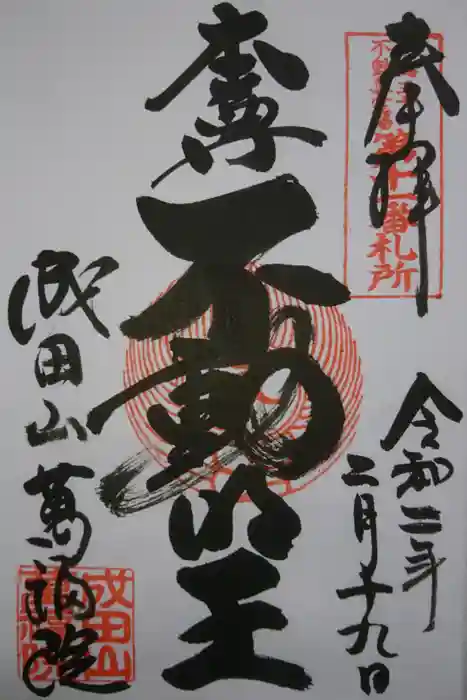 奉拝
第十一番札所
本尊
不動明王
令和二年
二月十九日
成田山萬福院
成田山